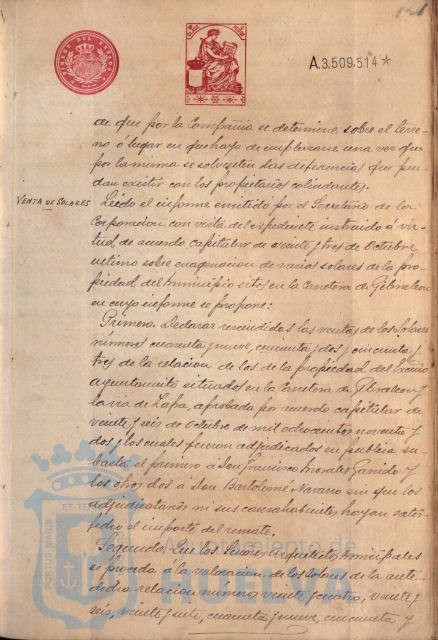 A.3,509,514*
de que por la Compañia se determine, sobre el terre-
no ó lugar en que haya de emplazarse, una vez que
por la misma se solventen las diferencias que pue-
dan existir con los propietarios colindantes.
VENTA DE SOLARES
Leido el informe emitido por el Secretario de la
Corporacion con vista del expediente instruido á vir-
tud, de acuerdo capitular de veinte y tres de Octubre
ultimo sobre enagenacion de varios solares de la pro-
piedad del Municipio sitos en la Carretera de Gibraleon
en cuyo informe se propone:
Primero. Declarar rescindidas las ventas de los Solares
números cuarenta y nueve, cincuenta y dos y cincuenta y
tres de la relacion de los de la propiedad del Excmo
Ayuntamiento situados en la Carretera de Gibraleon y
la via de Zafra, aprobada por acuerdo capitular de
veinte y seis de Octubre de mil ochocientos noventa y
dos y los cuales fueron adjudicados en publica su-
basta el primero á Don Francisco Morales Garrido y
los otros dos á Don Bartolomé Navarro sin que los
adjudicatarios ni sus causahabientes hayan satis-
fecho el importe del remate.
Segundo. Que los Señores Arquitectos Municipales
se proceda á la valoracion de los solares de la ante-
dicha relacion número veinte y cuatro, veinte y
seis, veinte y siete, cuarenta y nueve, cincuenta y
Ayuntamiento de
HUELVA
PORTUS MARIS